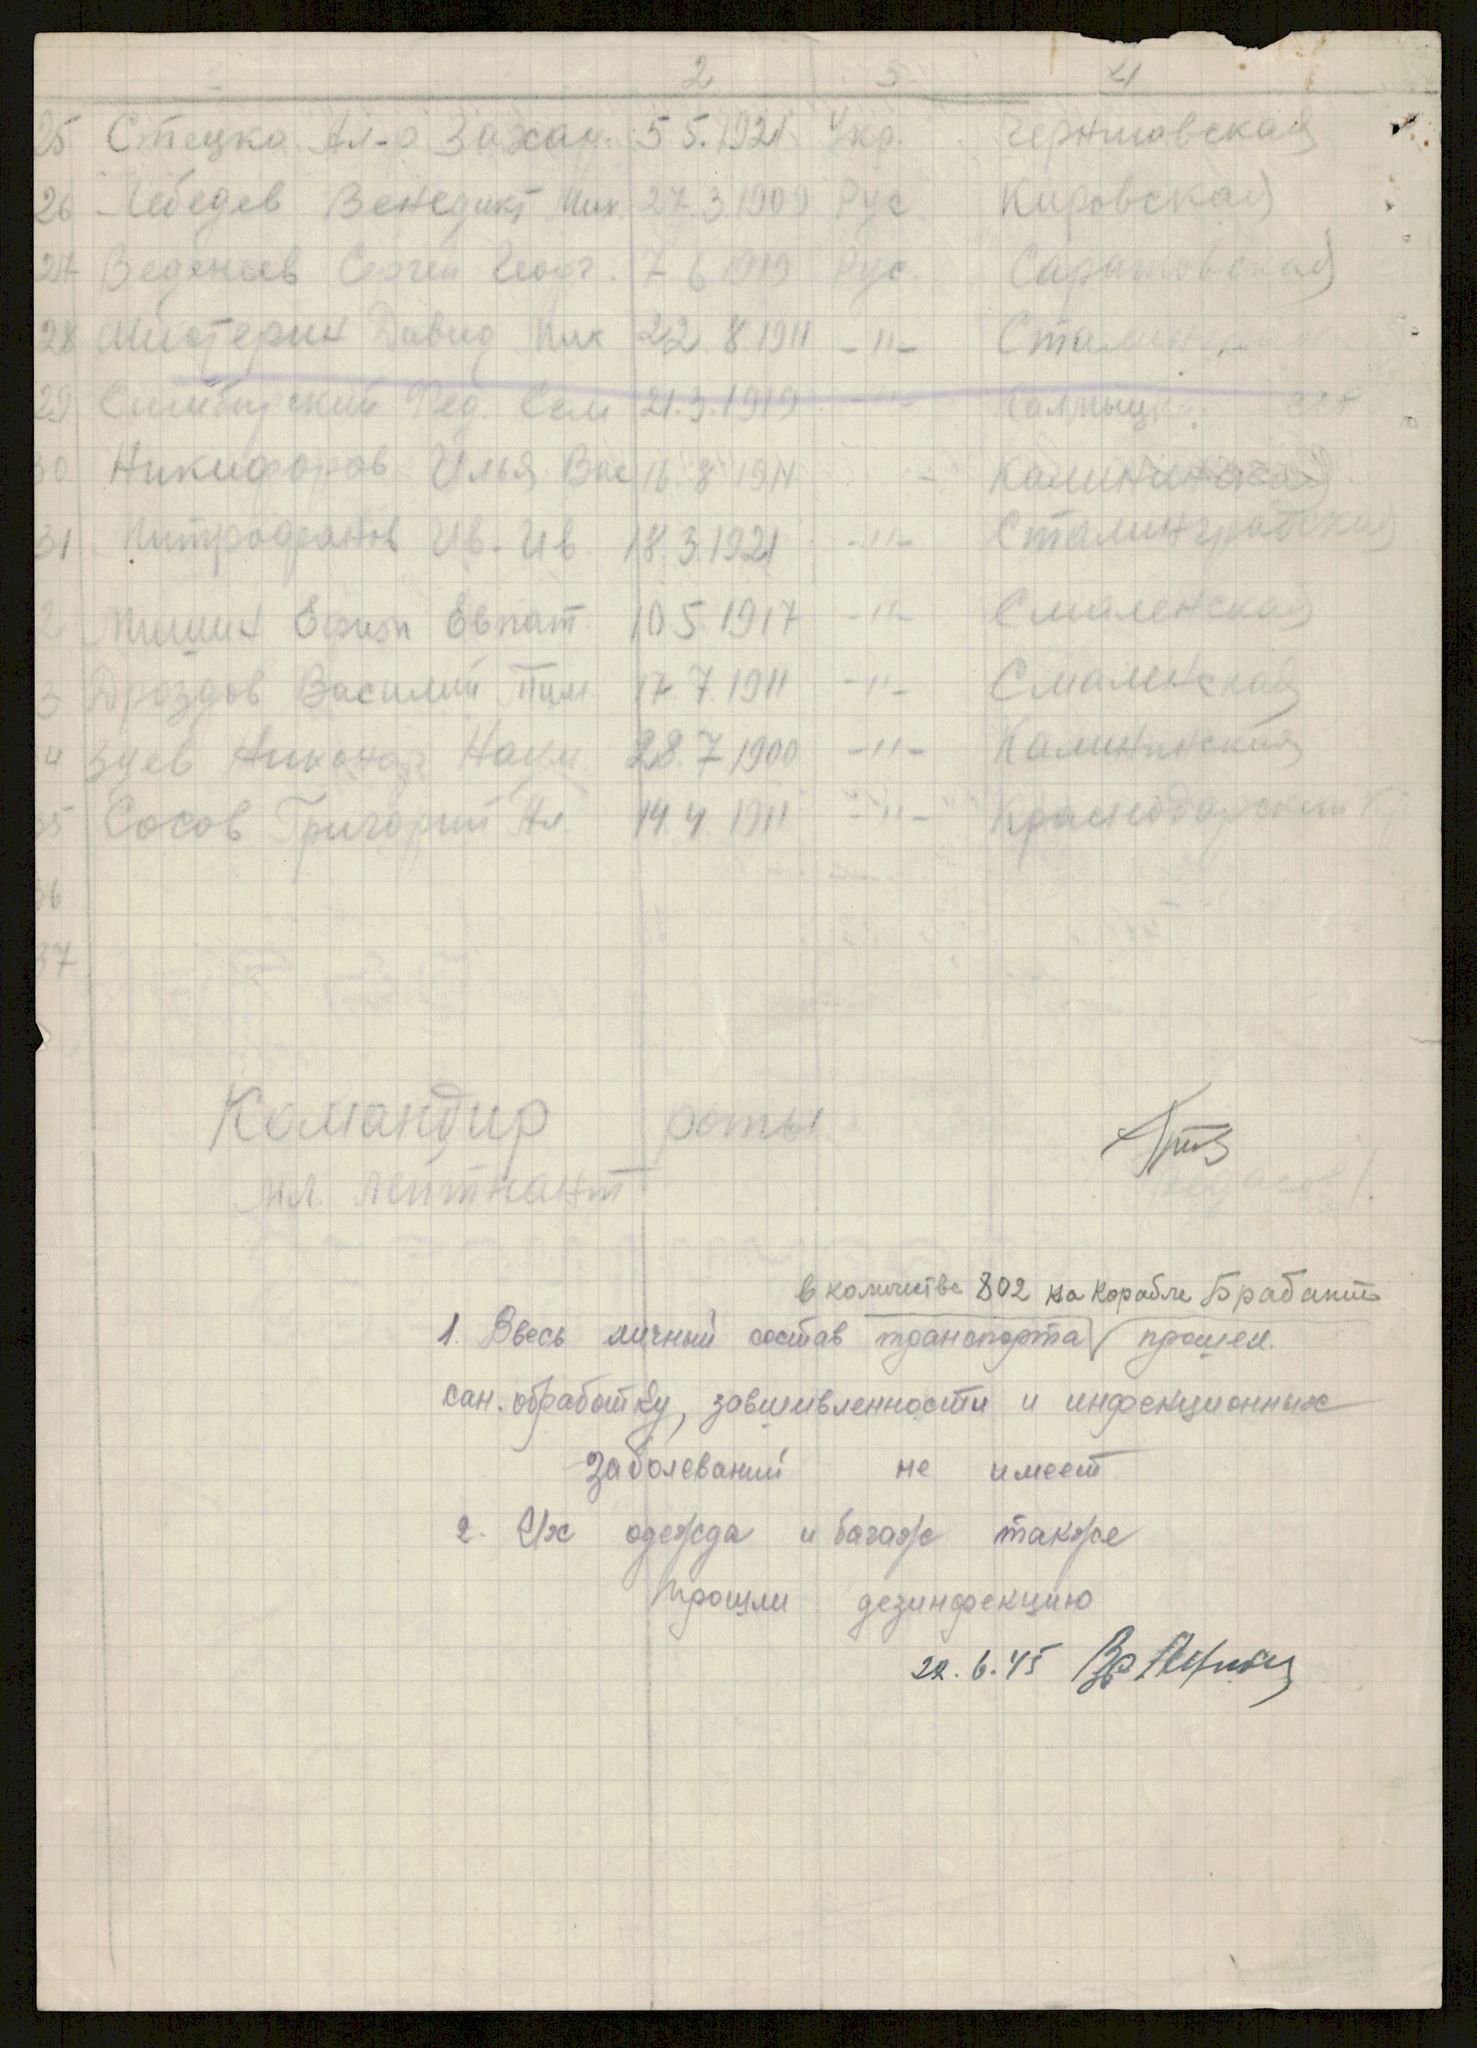 2 3 4
25 Стецко Ал-р Захар. 5 5. 1921 Укр. Черниговская
26 Лебедев Венедикт Мих. 27. 3 1909 Рус Кировская
27 Веденеев Сергей Георг. 7 6 1919 Рус. Саратовская
28 Давид 22 8. 1911 -"-
29 Симбирский Фед. Сем 21. 3. 1919 -"-
30 Никифоров Илья Вас 16 8 1911 Калининская
31 Митрофанов Ив. Ив 18. 3. 1921 -"- Сталинградская
2 Мишин Ефим Евпат. 10. 5. 1917 -"- Смаленская
3 Дроздов Василий Тим. 17. 7. 1911 -"- Смаленская
4 Зуев Никонор Наум. 28. 7 1900 -"- Калининская
35 Сосов Григорий Ал. 14. 4. 1911 -"- Краснодарский кр
36
37
Командир роты
мл. лейтнант
в количестве 802 на корабле Брабант
1. Ввесь личный состав транспорта прошел.
сан. обработку, завшивленности и инфекционных
заболеваний не имеет
2. Их одежда и багаж также
прошли дезинфекцию
22. 6. 45 Вр